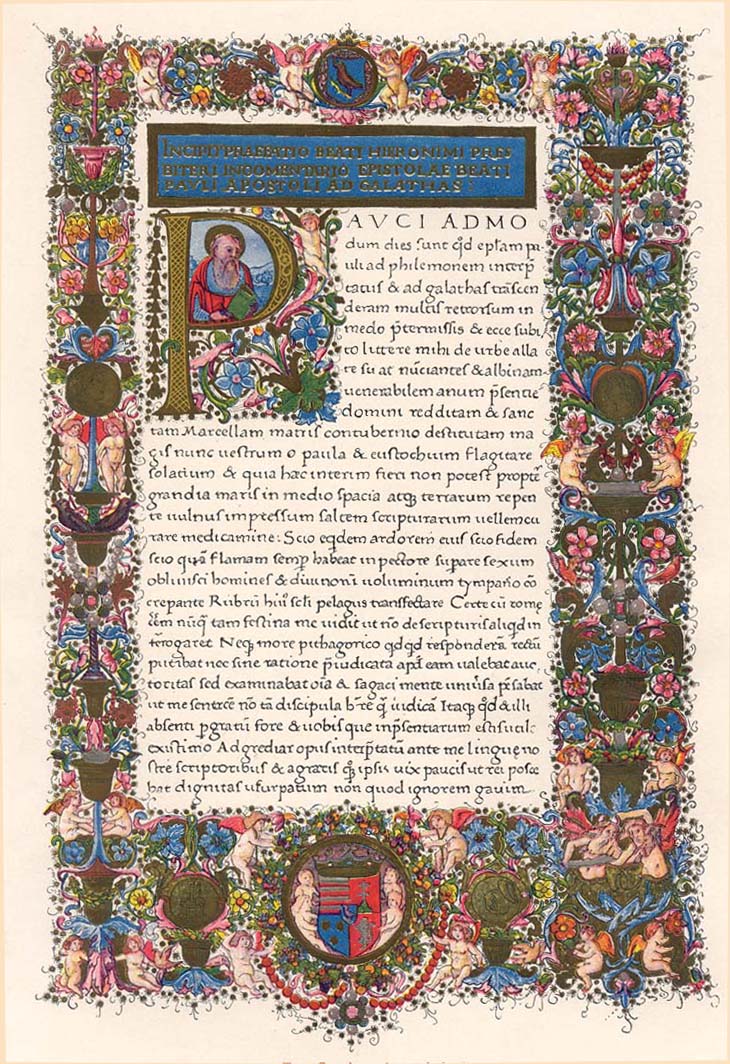 INCIPIT PRAEFATIO BEATI HIERONIMI PRES
BITERI IN COMENTARIO EPISTOLAE BEATI
PAVLI APOSTOLI AD GALATHAS:
PAVCI ADMO
dum dies sunt qd epłam pa
uli ad philemonem interp̄
tatus & ad galathas trāscen
deram multis retrorsum in
medo p̄termissis & ecce subi
to littere mihi de urbe alla
te su at nūciantes & albinam
uenerabilem anum p̄sentie
domini redditam & sanc
tam Marcellam matris contubernio destitutam ma
gis nunc uestrum o paula & eustochium flagitare
solatium & quia haec interim fieri non potest propt̄
grandia maris in medio spacia atq; terrarum repen
te uulnus impressum saltem scripturarum uellem cu
rare medicamine: Scio eqdem ardorem eius scio fidem
scio quā flamam semp habeat in pectore supare sexum
obliuisci homines & diuinorū uoluminum tympano cō
crepante Rubrū huiꝰ scłi pelagus transfretare Certe cū rome
eēm nūq̄ tam festina me uidit ut nō de scripturis aliqd in
terogaret Neq; more pithagorico qdqd responderā rectū
putabat nec sine ratione p̄iudicata apđ eam ualebat auc
toritas sed examinabat oīa & sagaci mente uniūsa p̄sabat
ut me sentirē nō tā discipulā hr̄e q̄ iudicā Itaq; qd & illi
absenti pgratū fore & uobis que in p̄sentiarum estis utile
existimo Adgrediar opus interp̄tatū ante me lingue no
stre scriptoribus & a gratis q̄q; ipsis uix paucis ut rei posce
bat dignitas usurpatum non quod ignorem gaium